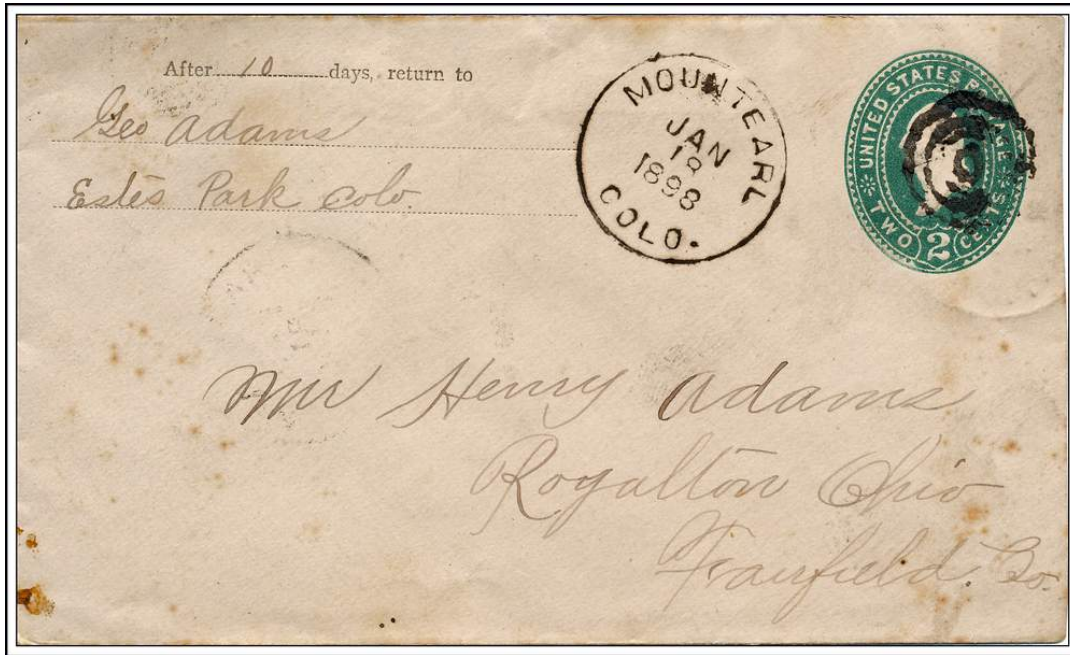 After 10 days, return to
Geo Adams
Estes Park Colo.
MOUNTEARL
JAN
18
1898
COLO.
UNITED STATES POSTAGE
TWO 2 CENTS
Mr Henry Adams
Royalton Ohio
Fairfield Co.